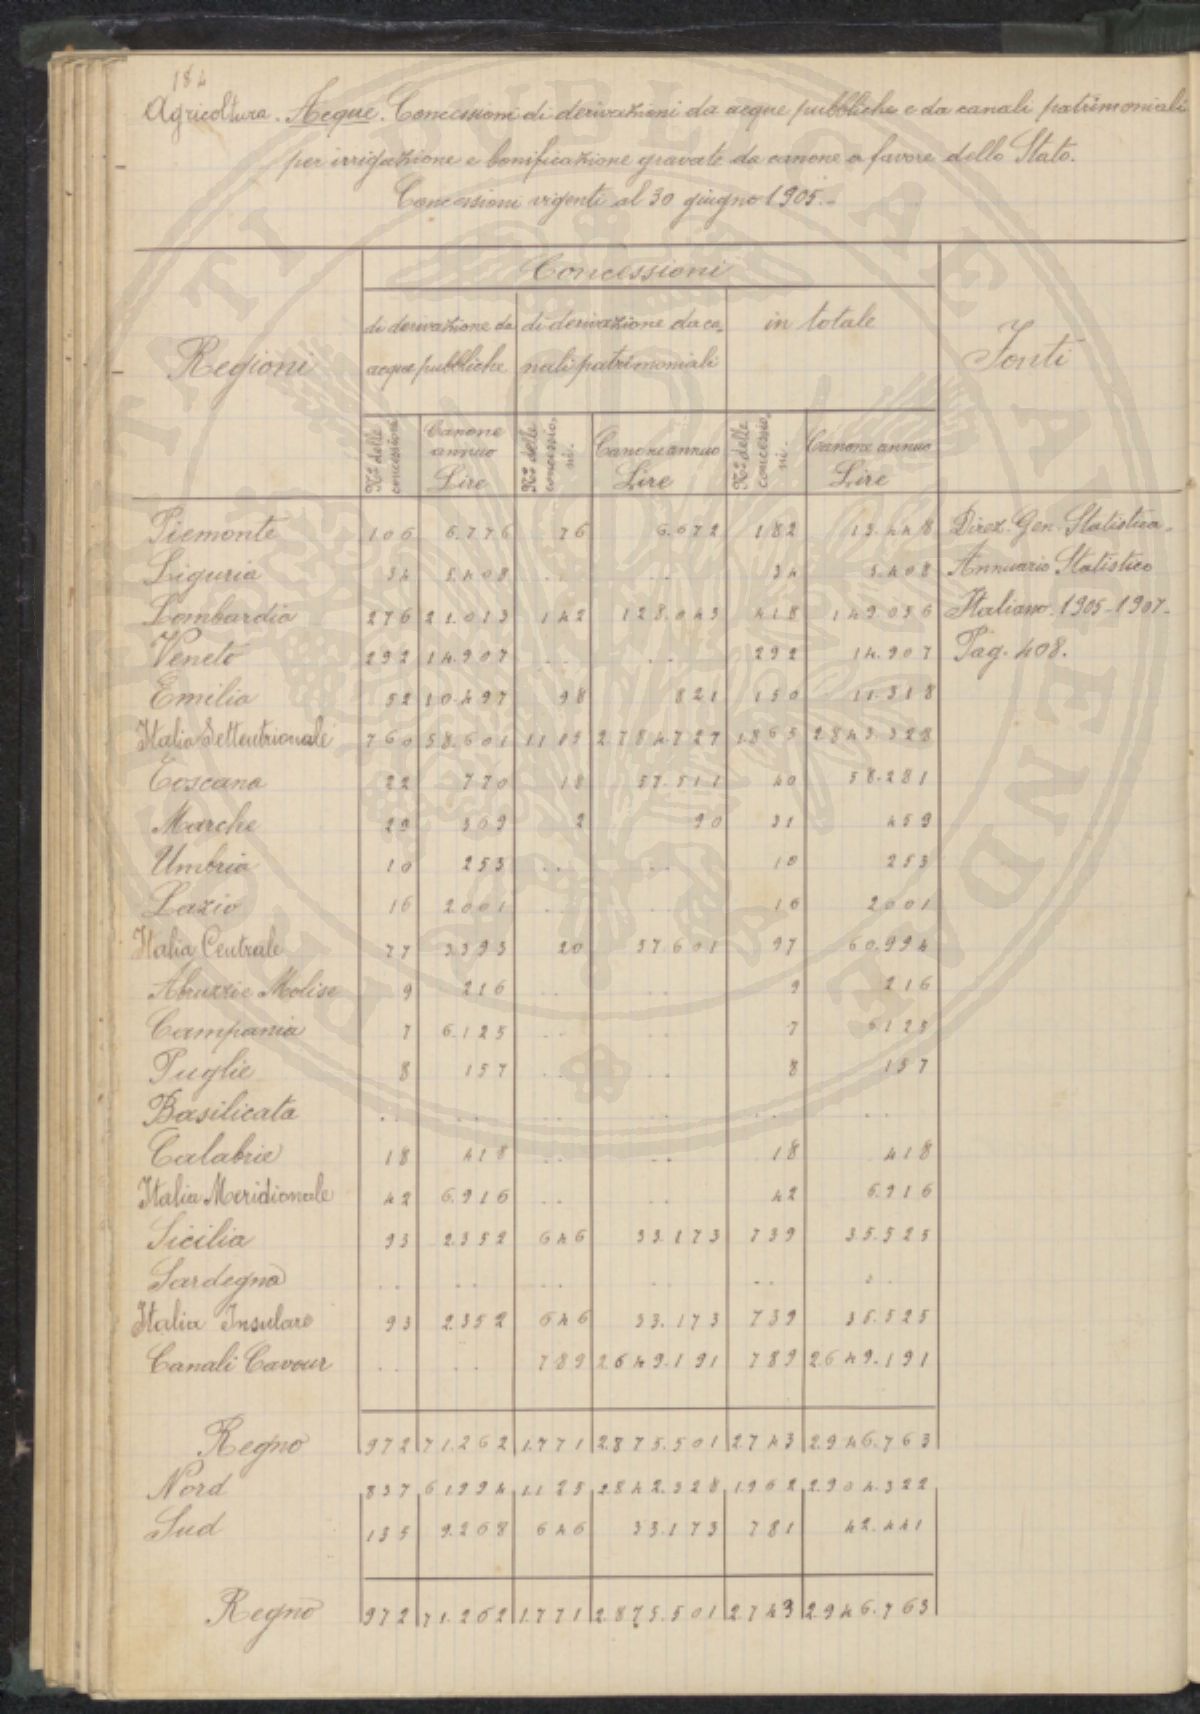 184
Agricoltura. Acque. Concessioni di derivazioni da acque pubbliche e da canali patrimoniali
per irrigazione e bonificazione gravate da canone a favore dello Stato.
Concessioni vigenti al 30 giugno 1905.-
Concessioni
Regioni di derivazione da acque pubbliche di derivazione da ca-nali patrimoniali in totale Fonti
No delle concessioni Canone annuo Lire No delle concessio-ni. Canone annuo Lire No delle concessio-ni. Canone annuo Lire
Piemonte 106 6.776 76 6.672 182 13.448 Direz. Gen. Statistica-
Liguria 34 5.408 .. .. 34 5.408 Annuario Statistico
Lombardia 276 21.013 142 128.043 418 149.056 Italiano-1905-1907-
Veneto 292 14.907 .. .. 292 14.907 Pag. 408.
Emilia 52 10.497 98 821 150 11.318
Italia Settentrionale 760 58.601 1105 2784727 1865 2843.328
Toscana 22 770 18 57.511 40 58.281
Marche 29 369 2 90 31 459
Umbria 10 253 .. .. 10 253
Lazio 16 2001 .. .. 16 2001
Italia Centrale 77 3393 20 57.601 97 60.994
Abruzzi e Molise 9 216 .. .. 9 216
Campania 7 6.125 .. .. 7 6.125
Puglie 8 157 .. .. 8 157
Basilicata .. .. .. .. .. ..
Calabrie 18 418 .. .. 18 418
Italia Meridionale 42 6.916 .. .. 42 6.916
Sicilia 93 2.352 646 33.173 739 35.525
Sardegna .. .. .. .. .. ..
Italia Insulare 93 2.352 646 33.173 739 35.525
Canali Cavour .. .. 789 2649.191 789 2649.191
Regno 972 71.262 1.771 2.875.501 2743 2.946.763
Nord 837 61994 1125 2842.328 1962 2.904.322
Sud 135 9.268 646 33.173 781 42.441
Regno 972 71.262 1.771 2.875.501 2743 2.946.763